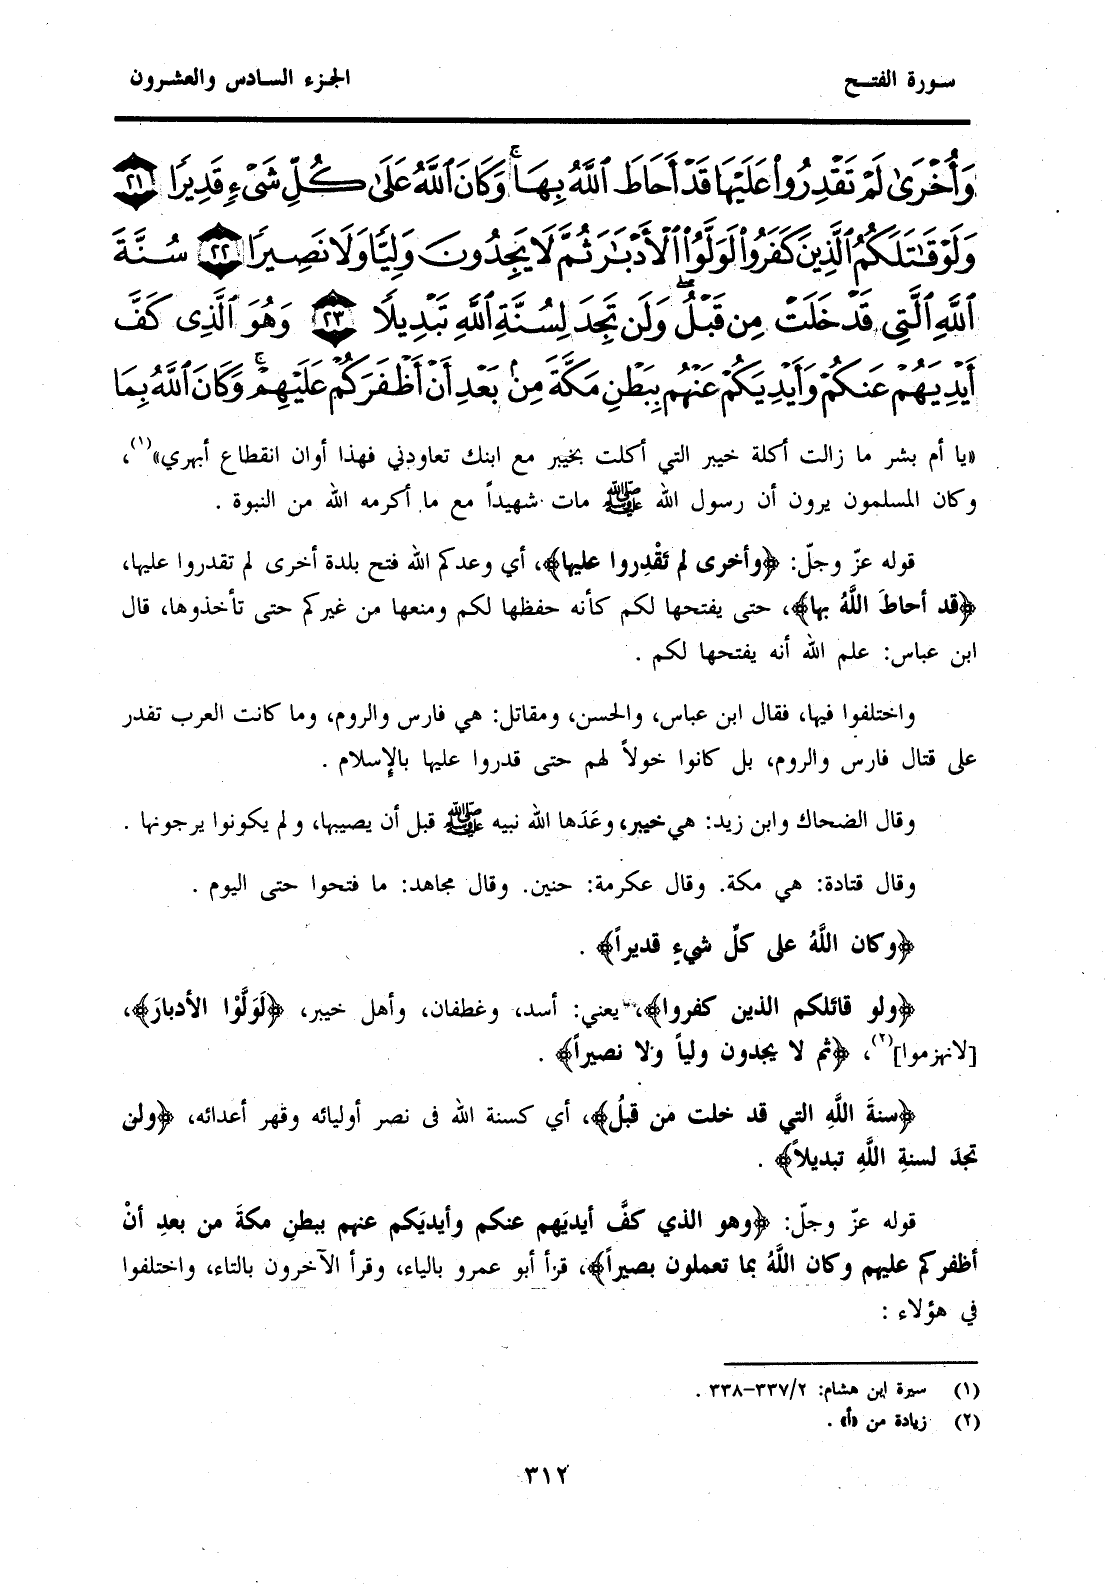 سورة الفتح
الجزء السادس والعشرون
وَأُخْرَىٰ لَمْ تَقْدِرُوا۟ عَلَيْهَا قَدْ أَحَاطَ ٱللَّهُ بِهَا ۚ وَكَانَ ٱللَّهُ عَلَىٰ كُلِّ شَىْءٍ قَدِيرًا ٢١
وَلَوْ قَٰتَلَكُمُ ٱلَّذِينَ كَفَرُوا۟ لَوَلَّوُا۟ ٱلْأَدْبَٰرَ ثُمَّ لَا يَجِدُونَ وَلِيًّا وَلَا نَصِيرًا ٢٢ سُنَّةَ
ٱللَّهِ ٱلَّتِى قَدْ خَلَتْ مِن قَبْلُ ۖ وَلَن تَجِدَ لِسُنَّةِ ٱللَّهِ تَبْدِيلًا ٢٣ وَهُوَ ٱلَّذِى كَفَّ
أَيْدِيَهُمْ عَنكُمْ وَأَيْدِيَكُمْ عَنْهُم بِبَطْنِ مَكَّةَ مِنۢ بَعْدِ أَنْ أَظْفَرَكُمْ عَلَيْهِمْ ۚ وَكَانَ ٱللَّهُ بِمَا
«يا أم بشر ما زالت أكلة خيبر التي أكلت بخيبر مع ابنك تعاودني فهذا أوان انقطاع أبهري»(١)،
وكان المسلمون يرون أن رسول الله ﷺ مات شهيداً مع ما أكرمه الله من النبوة .
قوله عزّ وجلّ: ﴿وأخرى لم تقْدِروا عليها﴾، أي وعدكم الله فتح بلدة أخرى لم تقدروا عليها،
﴿قد أحاطَ اللَّهُ بها﴾، حتى يفتحها لكم كأنه حفظها لكم ومنعها من غيركم حتى تأخذوها، قال
ابن عباس: علم الله أنه يفتحها لكم .
واختلفوا فيها، فقال ابن عباس، والحسن، ومقاتل: هي فارس والروم، وما كانت العرب تقدر
على قتال فارس والروم، بل كانوا خولاً لهم حتى قدروا عليها بالإسلام .
وقال الضحاك وابن زيد: هي خيبر، وعَدَها الله نبيه ﷺ قبل أن يصيبها، ولم يكونوا يرجونها .
وقال قتادة: هي مكة. وقال عكرمة: حنين. وقال مجاهد: ما فتحوا حتى اليوم .
﴿وكان اللَّهُ على كلِّ شيءٍ قديراً﴾ .
﴿ولو قاتلكم الذين كفروا﴾، يعني: أسد، وغطفان، وأهل خيبر، ﴿لَوَلَّوْا الأدبارَ﴾،
[لانهزموا](٢)، ﴿ثم لا يجدون ولياً ولا نصيراً﴾ .
﴿سنةَ اللَّهِ التي قد خلت من قبلُ﴾، أي كسنة الله في نصر أوليائه وقهر أعدائه، ﴿ولن
تجدَ لسنةِ اللَّهِ تبديلاً﴾ .
قوله عزّ وجلّ: ﴿وهو الذي كفَّ أيديَهم عنكم وأيديَكم عنهم ببطنِ مكةَ من بعدِ أنْ
أظفركم عليهم وكان اللَّهُ بما تعملون بصيراً﴾، قرأ أبو عمرو بالياء، وقرأ الآخرون بالتاء، واختلفوا
في هؤلاء :
(١) سيرة ابن هشام: ٣٣٧/٢-٣٣٨ .
(٢) زيادة من «أ» .
٣١٢